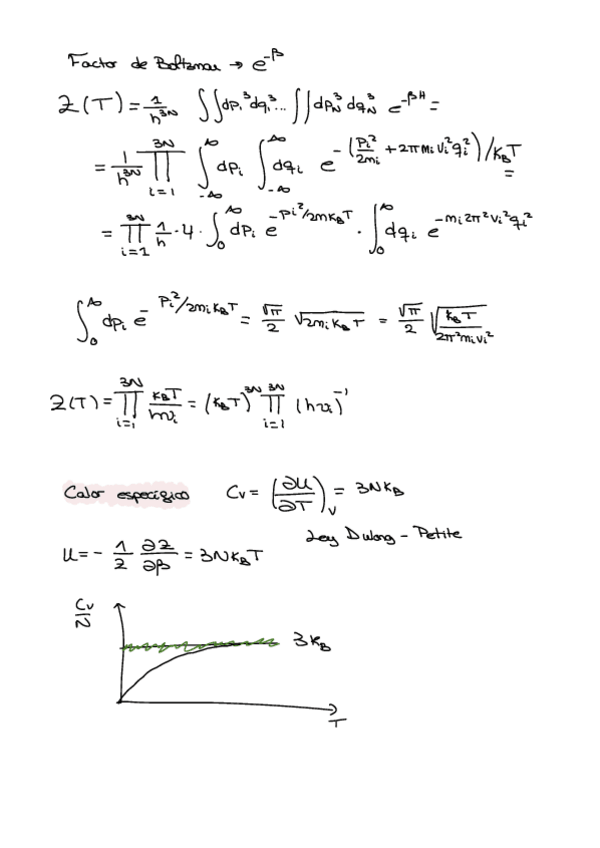 Factor de Boltzman → e^-β
Z(T) = 1/h^3N ∫∫dp₁³dq₁³... ∫∫dp_N³ dq_N³ e^-βH =
= 1/h^3N ∏_{i=1}^{3N} ∫_{-∞}^{∞} dpᵢ ∫_{-∞}^{∞} dqᵢ e^-(pᵢ²/2mᵢ + 2πmᵢνᵢ²qᵢ²)/K_BT =
= ∏_{i=1}^{3N} 1/h · 4 · ∫_0^∞ dpᵢ e^-pᵢ²/2mK_BT · ∫_0^∞ dqᵢ e^-mᵢ2π²νᵢ²qᵢ²
∫_0^∞ dpᵢ e^-pᵢ²/2mᵢK_BT = √π/2 √2mᵢK_BT = √π/2 √(K_BT/2π²mᵢνᵢ²)
Z(T) = ∏_{i=1}^{3N} K_BT/hνᵢ = (K_BT)^3N ∏_{i=1}^{3N} (hνᵢ)^-1
Calor específico Cv = (∂U/∂T)_V = 3NK_B
Ley Dulong - Petite
U = - 1/Z ∂Z/∂β = 3NK_BT
Cv/N
3K_B
T